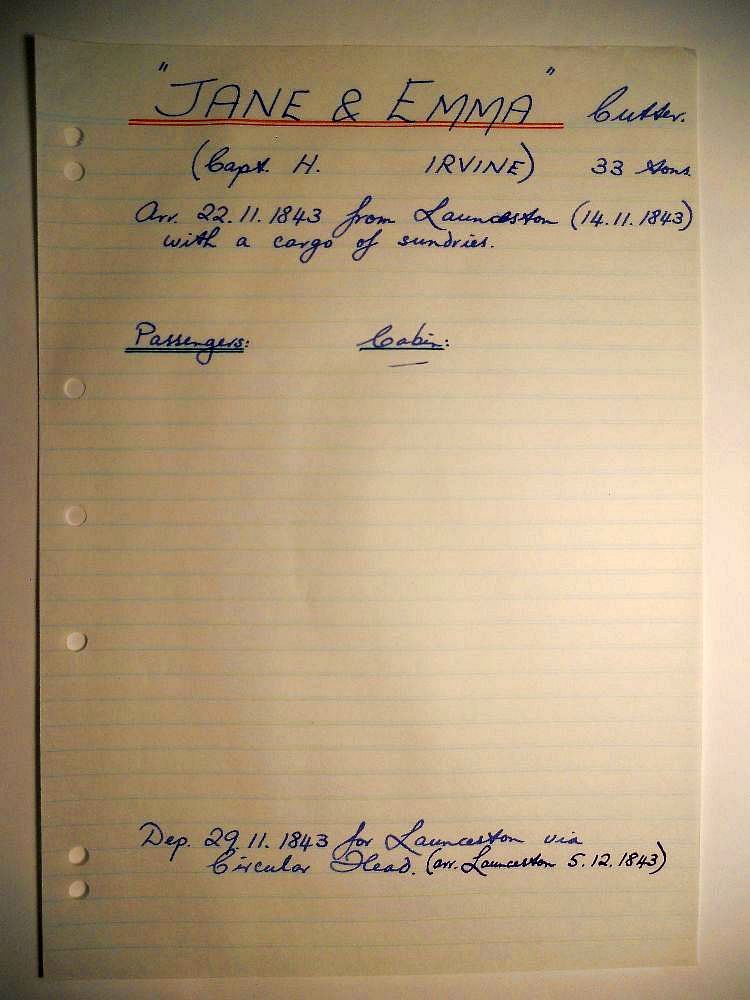 "JANE & EMMA" Cutter.
(Capt. H. IRVINE) 33 tons.
Arr. 22.11.1843 from Launceston (14.11.1843)
with a cargo of sundries.
Passengers: Cabin:
—
Dep. 29.11.1843 for Launceston via
Circular Head. (arr. Launceston 5.12.1843)